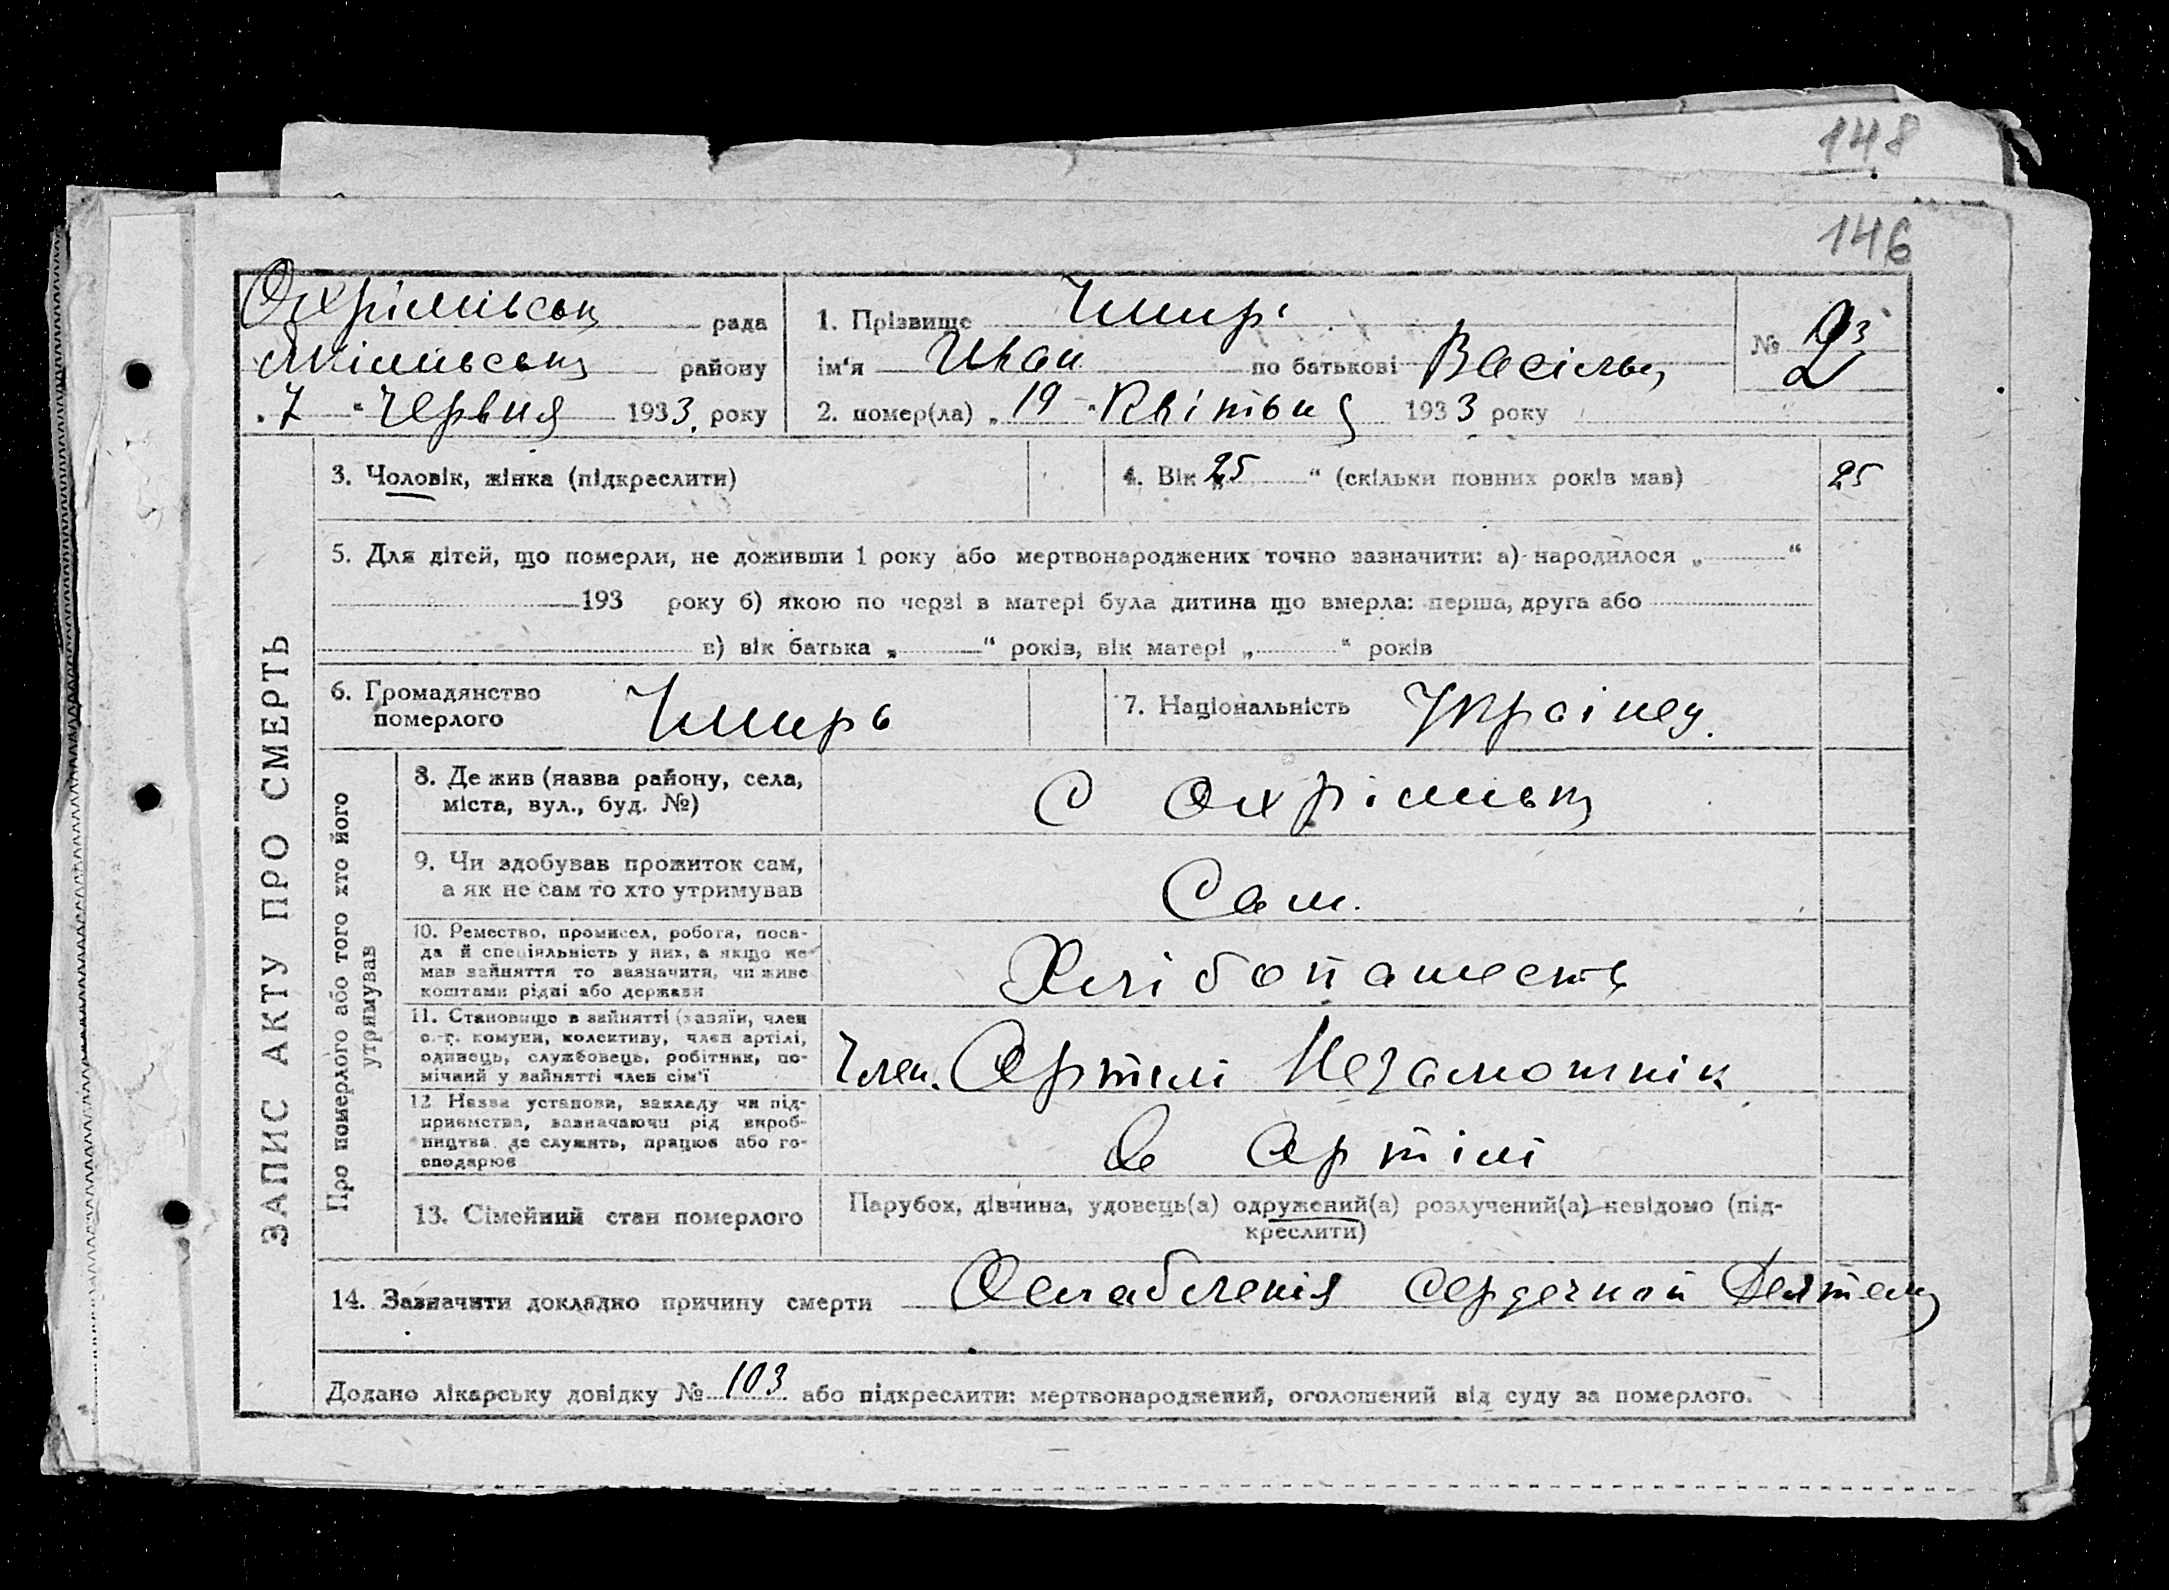 148
146
Охрімівськ рада
Якімівськ району
„7“ Червня 1933. року
1. Прізвище Чмирь
ім'я Иван по батькові Васільц
2. помер(ла) „19“ Квітьня 1933 року
№
3. Чоловік, жінка (підкреслити)
4. Вік „25“ (скільки повних років мав) 25
5. Для дітей, що померли, не доживши 1 року або мертвонароджених точно зазначити: а) народилося „ “
193 року б) якою по черзі в матері була дитина що вмерла: перша, друга або
в) вік батька „ “ років, вік матері „ “ років
6. Громадянство
померлого
Чмирь
7. Національність Українец.
ЗАПИС АКТУ ПРО СМЕРТЬ
Про померлого або того хто його
утримував
8. Де жив (назва району, села,
міста, вул., буд. №)
С Охрімівка
9. Чи здобував прожиток сам,
а як не сам то хто утримував
Сам.
10. Ремество, промисел, робота, поса-
да й спеціяльність у них, а якщо не
мав зайняття то зазначити, чи живе
коштами рідні або держави
Хлібопашеств
11. Становище в зайнятті (хазяїн, член
с.-г. комуни, колективу, член артілі,
одинець, службовець, робітник, по-
мічний у зайнятті член сім'ї
Член. Артилі Незаможнік
12. Назва установи, закладу чи під-
приємства, зазначаючи рід вироб-
ництва де служить, працює або го-
сподарює
в Артілі
13. Сімейний стан померлого
Парубок, дівчина, удовець(а) одружений(а) розлучений(а) невідомо (під-
креслити)
14. Зазначити докладно причину смерти Ослабленія сердечной Деятель
Додано лікарську довідку № 103 або підкреслити: мертвонароджений, оголошений від суду за померлого.